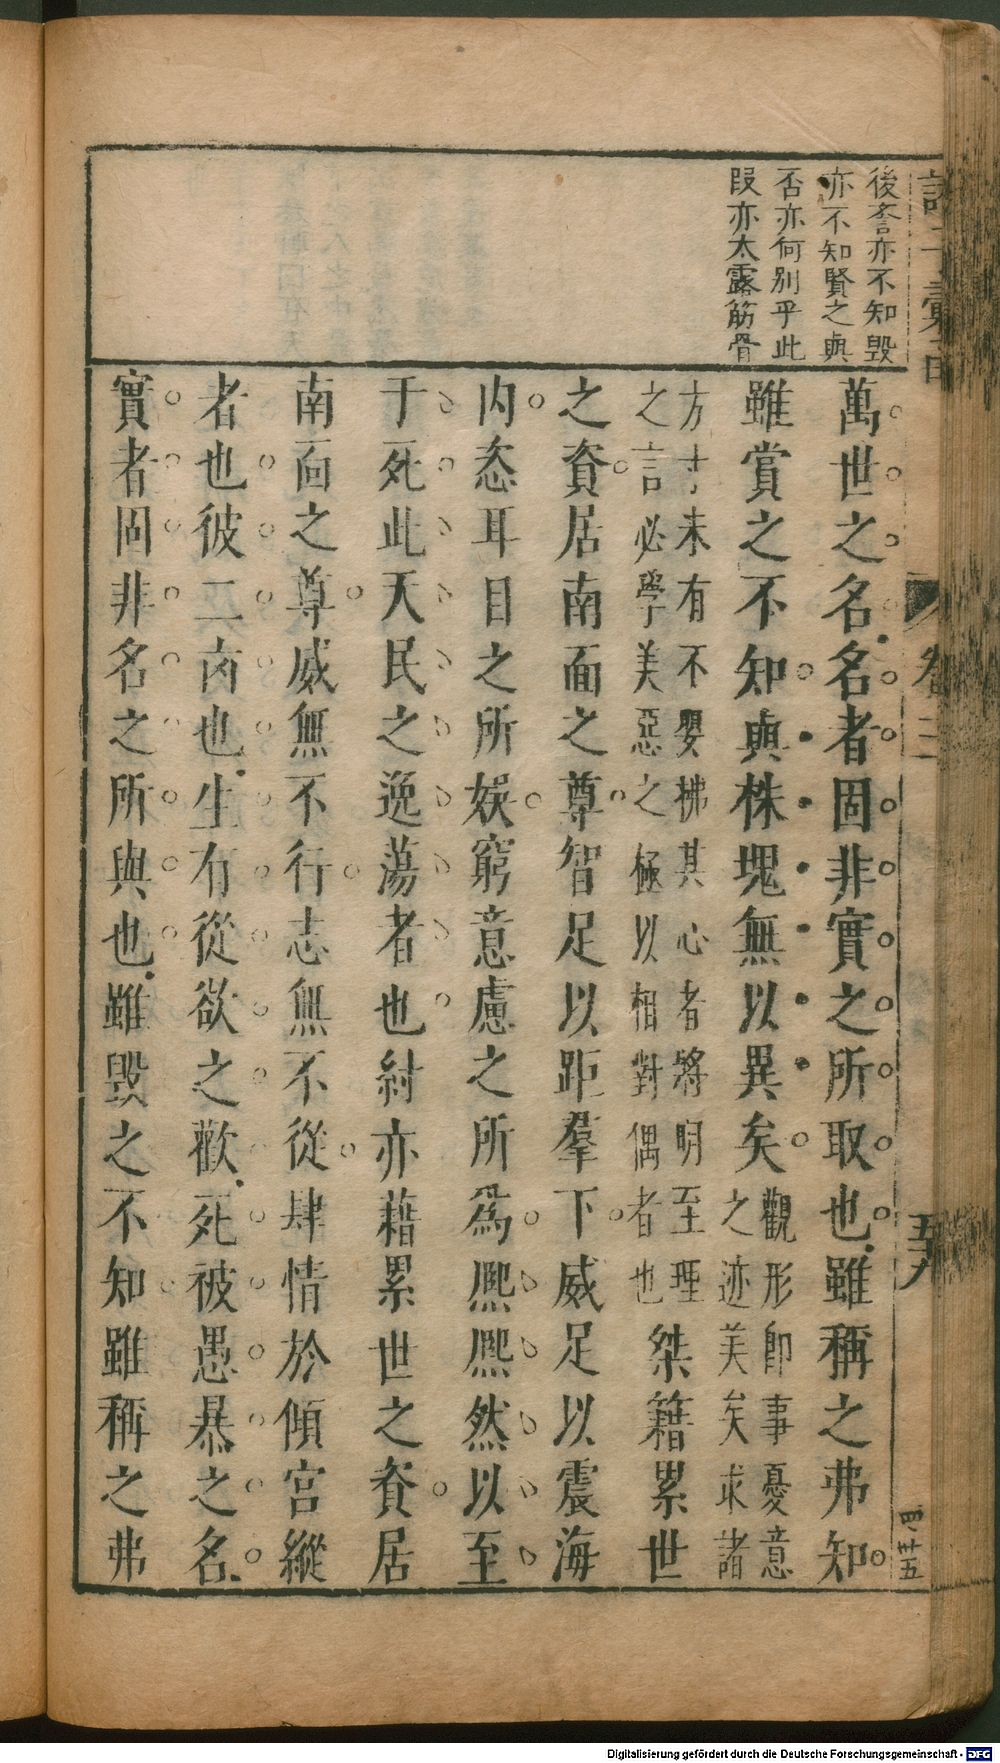 後言亦不知毀
亦不知賢之與
否亦何別乎此
段亦太露筋骨
萬世之名名者固非實之所取也雖稱之弗知
雖賞之不知與株塊無以異矣觀形即事憂意
之迹美矣求諸
方寸未有不嬰拂其心者將明至理
之言必學美惡之極以相對偶者也桀籍累世
之資居南面之尊智足以距羣下威足以震海
内恣耳目之所娛窮意慮之所爲熙熙然以至
于死此天民之逸蕩者也紂亦藉累世之資居
南面之尊威無不行志無不從肆情於傾宮縱
者也彼二凶也生有從欲之歡死被愚暴之名
實者固非名之所與也雖毀之不知雖稱之弗
卷二
五九
四卅五
Digitalisierung gefördert durch die Deutsche Forschungsgemeinschaft - DFG